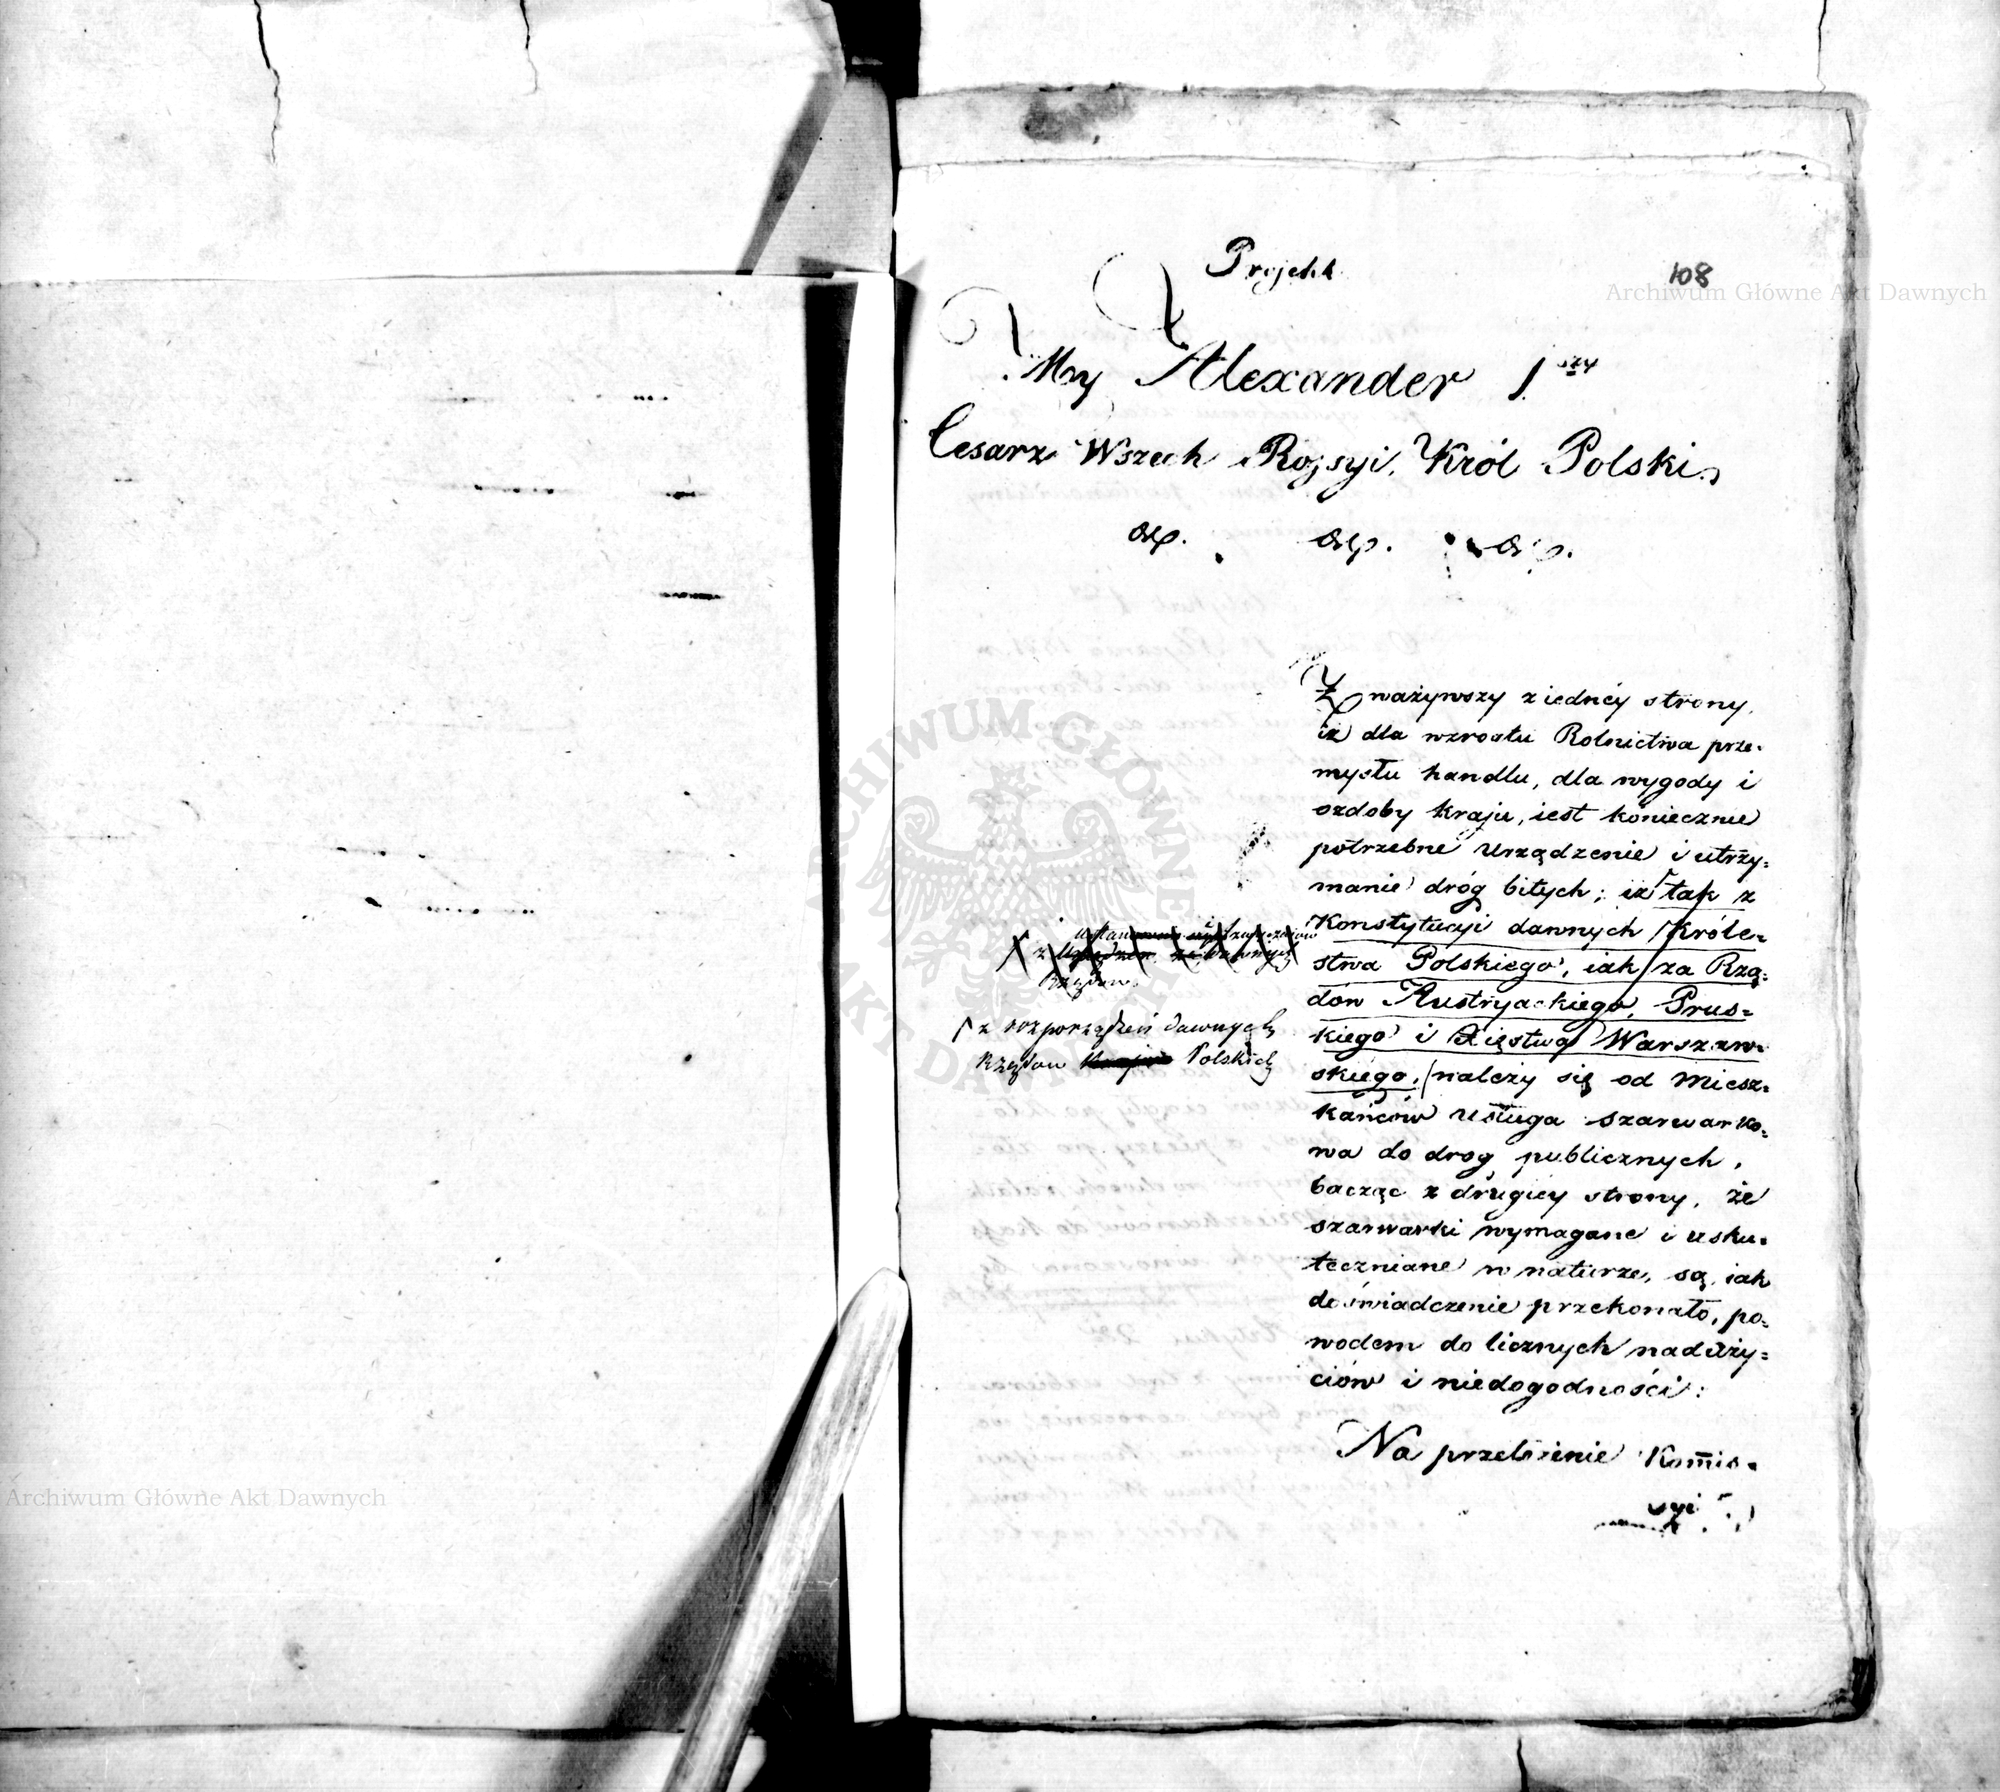 Projekt
108
Archiwum Główne Akt Dawnych
My Alexander 1szy
Cesarz Wszech Rossyi, Król Polski
&c. &c. &c.
Zważywszy z iednéy strony,
iż dla wzrostu Rolnictwa prze-
mysłu handlu, dla wygody i
ozdoby kraju, iest koniecznie
potrzebne urządzenie i utrzy-
manie dróg bitych; iż tak z
Konstytucyi dawnych Króle-
stwa Polskiego, iak za Rzą-
dów Austryackiego, Prus-
kiego i Xięstwa Warszaw-
skiego, należy się od Miesz-
kańców usługa szarwarko-
wa do drog publicznych,
bacząc z drugiey strony, że
szarwarki wymagane i usku-
teczniane w naturze, są, iak
doświadczenie przekonało, po-
wodem do licznych naduży-
ciów i niedogodności:
Na przełożenie Kommis-
syi
z dawnych
Rządów
z rozporządzeń dawnych
Rządow Polskich
ARCHIWUM GŁÓWNE AKT DAWNYCH
Archiwum Główne Akt Dawnych